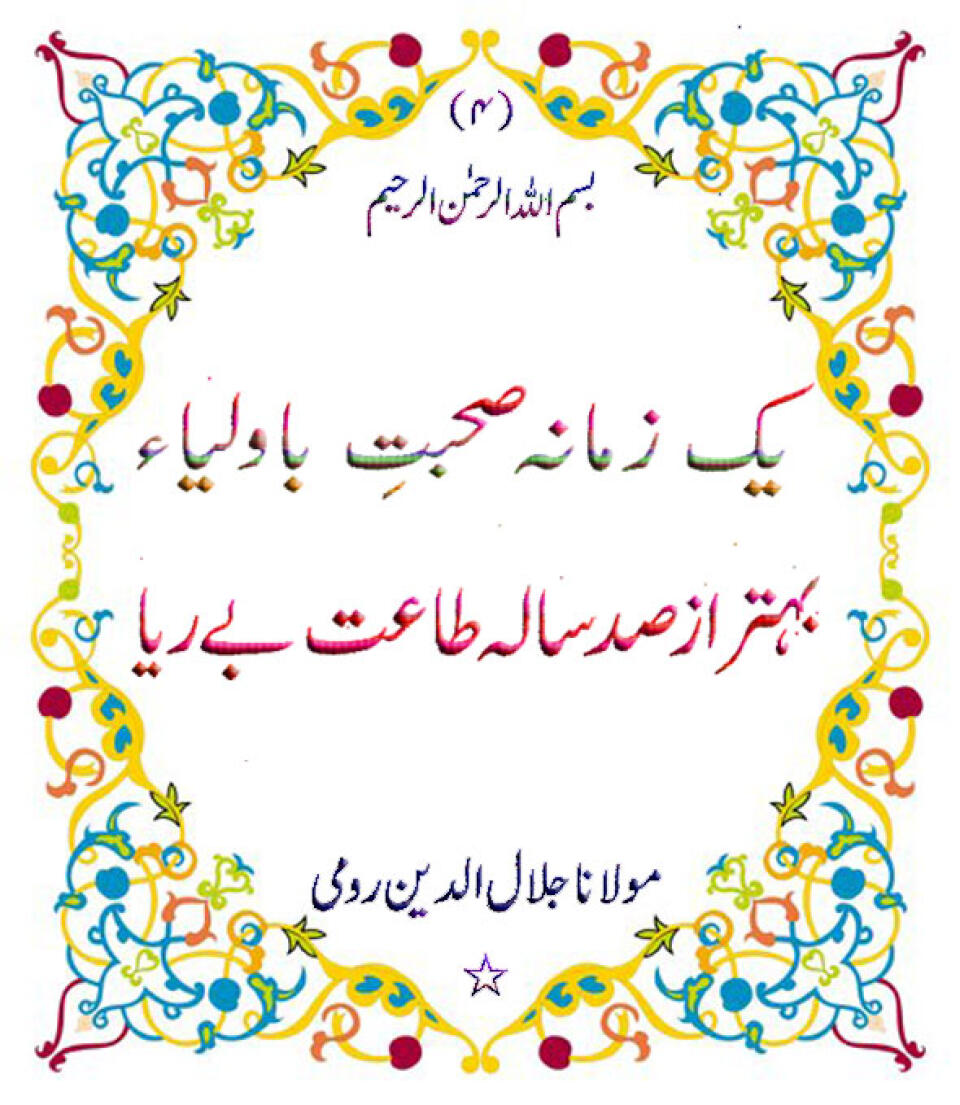 (۴)
بسم اللہ الرحمٰن الرحیم
یک زمانہ صحبتِ باولیاء
بہتر از صد سالہ طاعت بے ریا
مولانا جلال الدین رومی